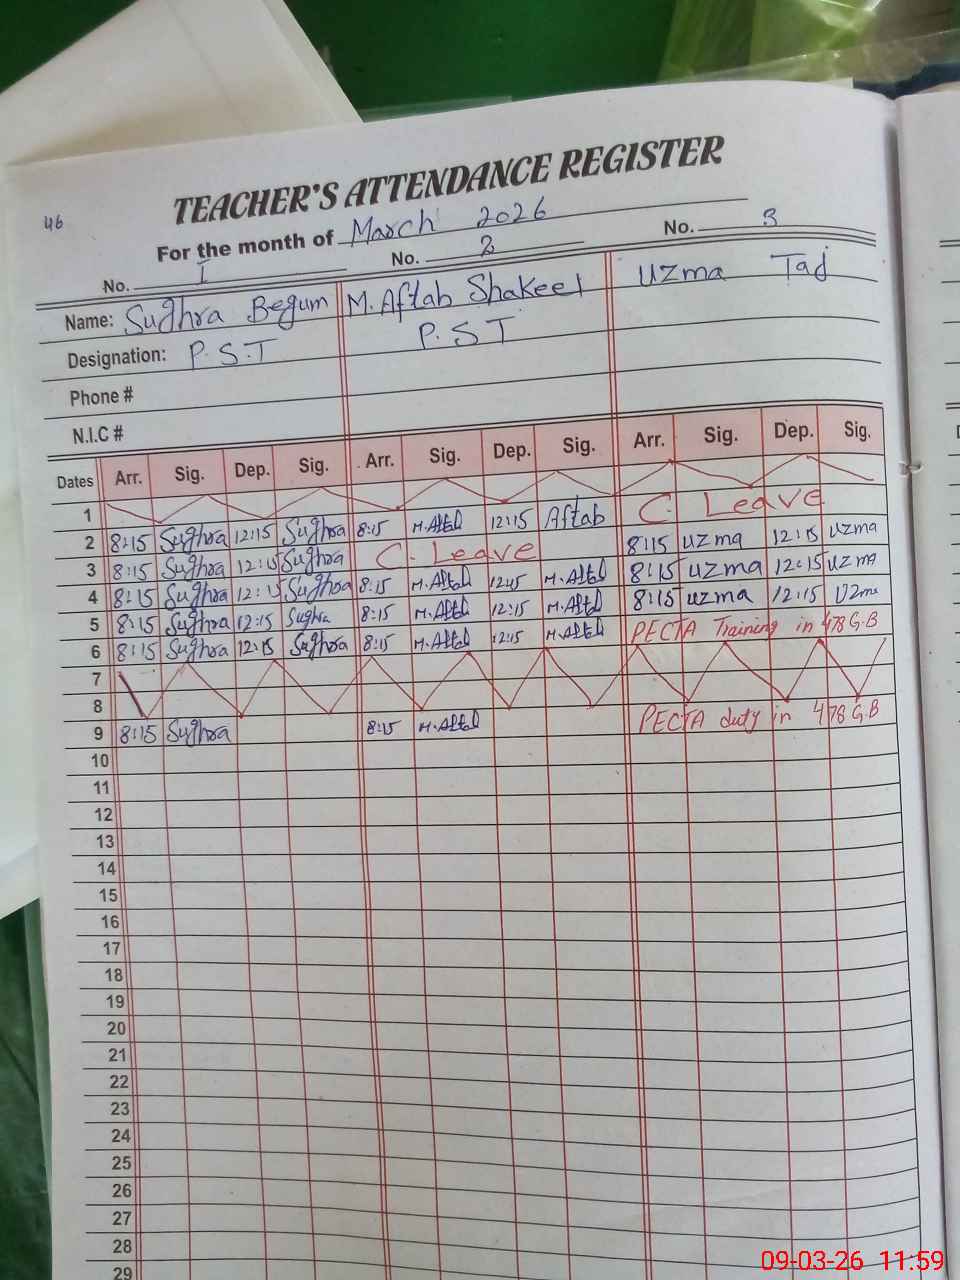 46
TEACHER'S ATTENDANCE REGISTER
For the month of March 2026
No. 1 No. 2 No. 3
Name: Sughra Begum M. Aftab Shakeel Uzma Taj
Designation: P.S.T P.S.T
Phone #
N.I.C #
Dates Arr. Sig. Dep. Sig. Arr. Sig. Dep. Sig. Arr. Sig. Dep. Sig.
1
2 8:15 Sughra 12:15 Sughra 8:15 M.Aftab 12:15 Aftab C. Leave
3 8:15 Sughra 12:15 Sughra C. Leave 8:15 uzma 12:15 uzma
4 8:15 Sughra 12:15 Sughra 8:15 M.Aftab 12:15 M.Aftab 8:15 uzma 12:15 uzma
5 8:15 Sughra 12:15 Sughra 8:15 M.Aftab 12:15 M.Aftab 8:15 uzma 12:15 Uzma
6 8:15 Sughra 12:15 Sughra 8:15 M.Aftab 12:15 M.Aftab PECTA Training in 478 G.B
7
8
9 8:15 Sughra 8:15 M.Aftab PECTA duty in 478 G.B
10
11
12
13
14
15
16
17
18
19
20
21
22
23
24
25
26
27
28
29
09-03-26 11:59